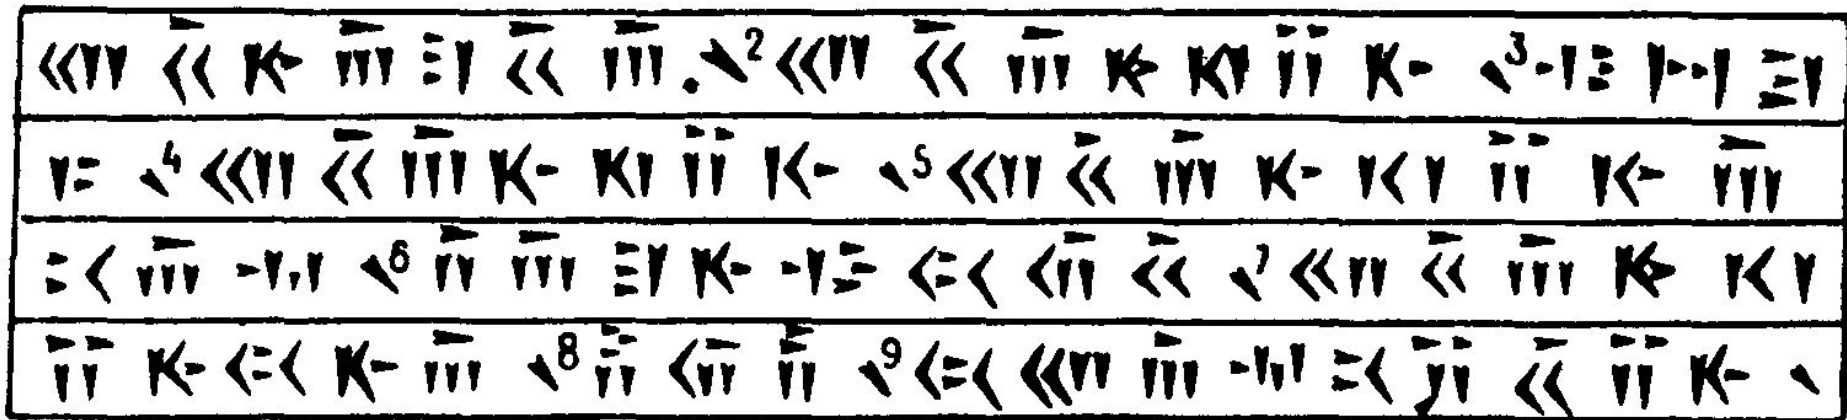 𐎧𐏁𐎹𐎠𐎼𐏁𐎠. 𐏐2 𐎧𐏁𐎠𐎹𐎰𐎡𐎹 𐏐3 𐎺𐏀𐎼
𐎣 𐏐4 𐎧𐏁𐎠𐎹𐎰𐎡𐎹 𐏐5 𐎧𐏁𐎠𐎹𐎰𐎡𐎹𐎠
𐎴𐎠𐎶 𐏐6 𐎭𐎠𐎼𐎹𐎺𐏃𐎢𐏁 𐏐7 𐎧𐏁𐎠𐎹𐎰
𐎡𐎹𐏃𐎹𐎠 𐏐8 𐎱𐎢𐏂 𐏐9 𐏃𐎧𐎠𐎶𐎴𐎡𐏁𐎡𐎹 𐏐